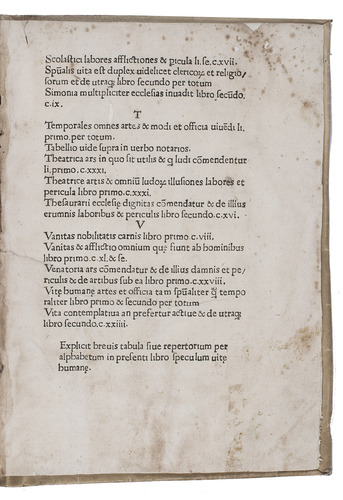 Scolastici labores afflictiones & picula li.se.c.xvii.
Spūalis uita est duplex uidelicet clericoꝝ et religio/
sorum et de utraqꝫ libro secundo per totum
Simonia multipliciter ecclesias inuadit libro secūdo.
c.ix.
T
Temporales omnes artes & modi et officia uiuēdi li.
primo. per totum.
Tabellio uide supra in uerbo notarios.
Theatrica ars in quo sit utilis & ꝗ ludi cōmendentur
li.primo.c.xxxi.
Theatrice artis & omniū ludoꝝ illusiones labores et
pericula libro primo.c.xxxi.
Thesaurarii ecclesię dignitas cōmendatur & de illius
erumnis laboribus & periculis libro secundo.c.xvi.
V
Vanitas nobilitatis carnis libro primo c.viii.
Vanitas & afflictio omnium quę fiunt ab hominibus
libro primo.c.xl.& se.
Venatoria ars cōmendatur & de illius damnis et pe/
riculis & de artibus sub ea libro primo.c.xxviii.
Vitę humanę artes et officia tam spūaliter ꝗ̄ tempo
raliter libro primo & secundo per totum
Vita contemplatiua an prefertur actiue & de utraqꝫ
libro secundo.c.xxiiii.
Explicit breuis tabula siue repertorium per
alphabetum in presenti libro speculum uitę
humanę.